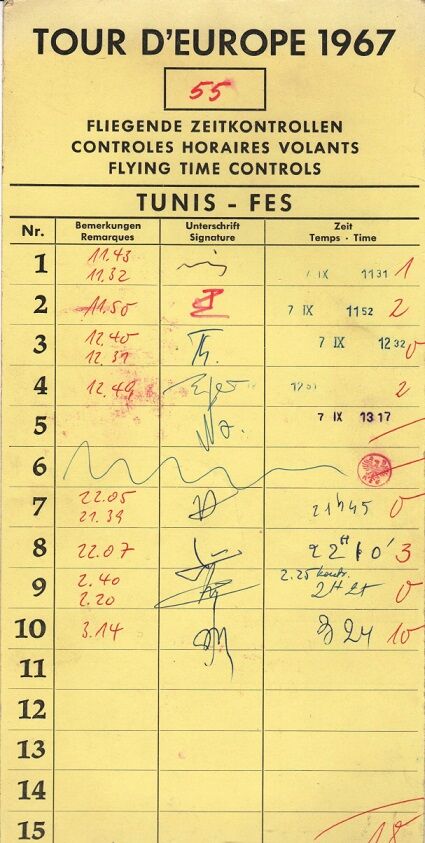 TOUR D'EUROPE 1967
55
FLIEGENDE ZEITKONTROLLEN
CONTROLES HORAIRES VOLANTS
FLYING TIME CONTROLS
TUNIS - FES
Nr. Bemerkungen Remarques Unterschrift Signature Zeit Temps · Time
1 11.43 11.32 IX 11 31 1
2 11.50 7 IX 11 52 2
3 12.40 12.31 Th. 7 IX 12 32 0
4 12.49 2
5 7 IX 13 17
6
7 22.05 21.39 21h45 0
8 22.07 22H 10' 3
9 2.40 2.20 2.25 2H 25 0
10 3.14 3 24 10
11
12
13
14
15 18